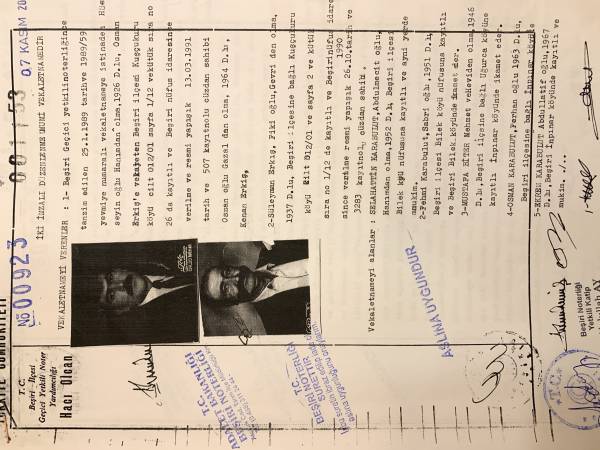 TÜRKİYE CUMHURİYETİ
T.C.
Beşiri İlçesi
Geçici Yetkili Noter
Yardımcılığı
Hacı Olcan
No 00923
001153
07 KASIM 20
İKİ İMZALI DÜZENLEME VEKALETNAMEDİR
VEKALETNAMEYİ VERENLER : 1- Beşiri Geçici yetkili noterliğince
tanzim edilen 25. .1989 tarih ve 1989/59
yevmiye numaralı vekaletnameye istinaden
seyin oğlu Hanımadan olma, 1926 D.lu, Osman
Erkiş'e vekaleten Beşiri ilçesi Kuşçukuru
köyü cilt 012/01 sayfa 1/12 ve kütük sıra no
26 da kayıtlı ve Beşiri nüfus idaresince
verilme ve resmi yapışık 13.03.1991
tarih ve 507 kayıt nolu cüzdan sahibi
Osman oğlu Gazal dan olma, 1964 D.lı,
Kenan Erkiş,
2-Süleyman Erkiş, Fiki oğlu, Gevri den olma,
1937 D.lu, Beşiri ilçesine bağlı Kuşçukuru
köyü cilt 012/01 ve sayfa 2 ve kütük
sıra no 1/12 de kayıtlı ve Beşiri nüfus idare
since verilme resmi yapışık 26.10.1990 tarih ve
3283 kayıt nol, cüzdan sahibi
Vekaletnameyi alanlar : SELAHATTİN KARABULUT, Abdulmecit oğlu,
Hanımdan olma, 1952 D.lı, Beşiri ilçesi
Bilek köyü nüfusuna kayıtlı ve aynı yerde
mukim.
2-Fehmi Karabulut, Sabri oğlu, 1951 D.lı,
Beşiri ilçesi Bilek köyü nüfusuna kayıtlı
ve Beşiri Bilek köyünde ikamet eder.
3-MUSTAFA Mehmet vahevi den olma, 1946
D.lı, Beşiri ilçesine bağlı Uğurca köyüne
kayıtlı İnpınar köyünde ikamet eder.
4-OSMAN KARABULUT, Ferhan oğlu 1963 D.lu,
Beşiri ilçesine bağlı İnpınar köyünde
5-EKREM KARABULUT Abdullatif oğlu, 1967
D.lı, Beşiri İnpınar köyünde kayıtlı ve
mukim. ./..
ADALET BAKANLIĞI
T.C.
BEŞİRİ NOTERLİĞİ
T.C.
BEŞİRİ NOTERLİĞİ
ASLINA UYGUNDUR
Beşiri Noterliği
Yetkili Katip
T.C.